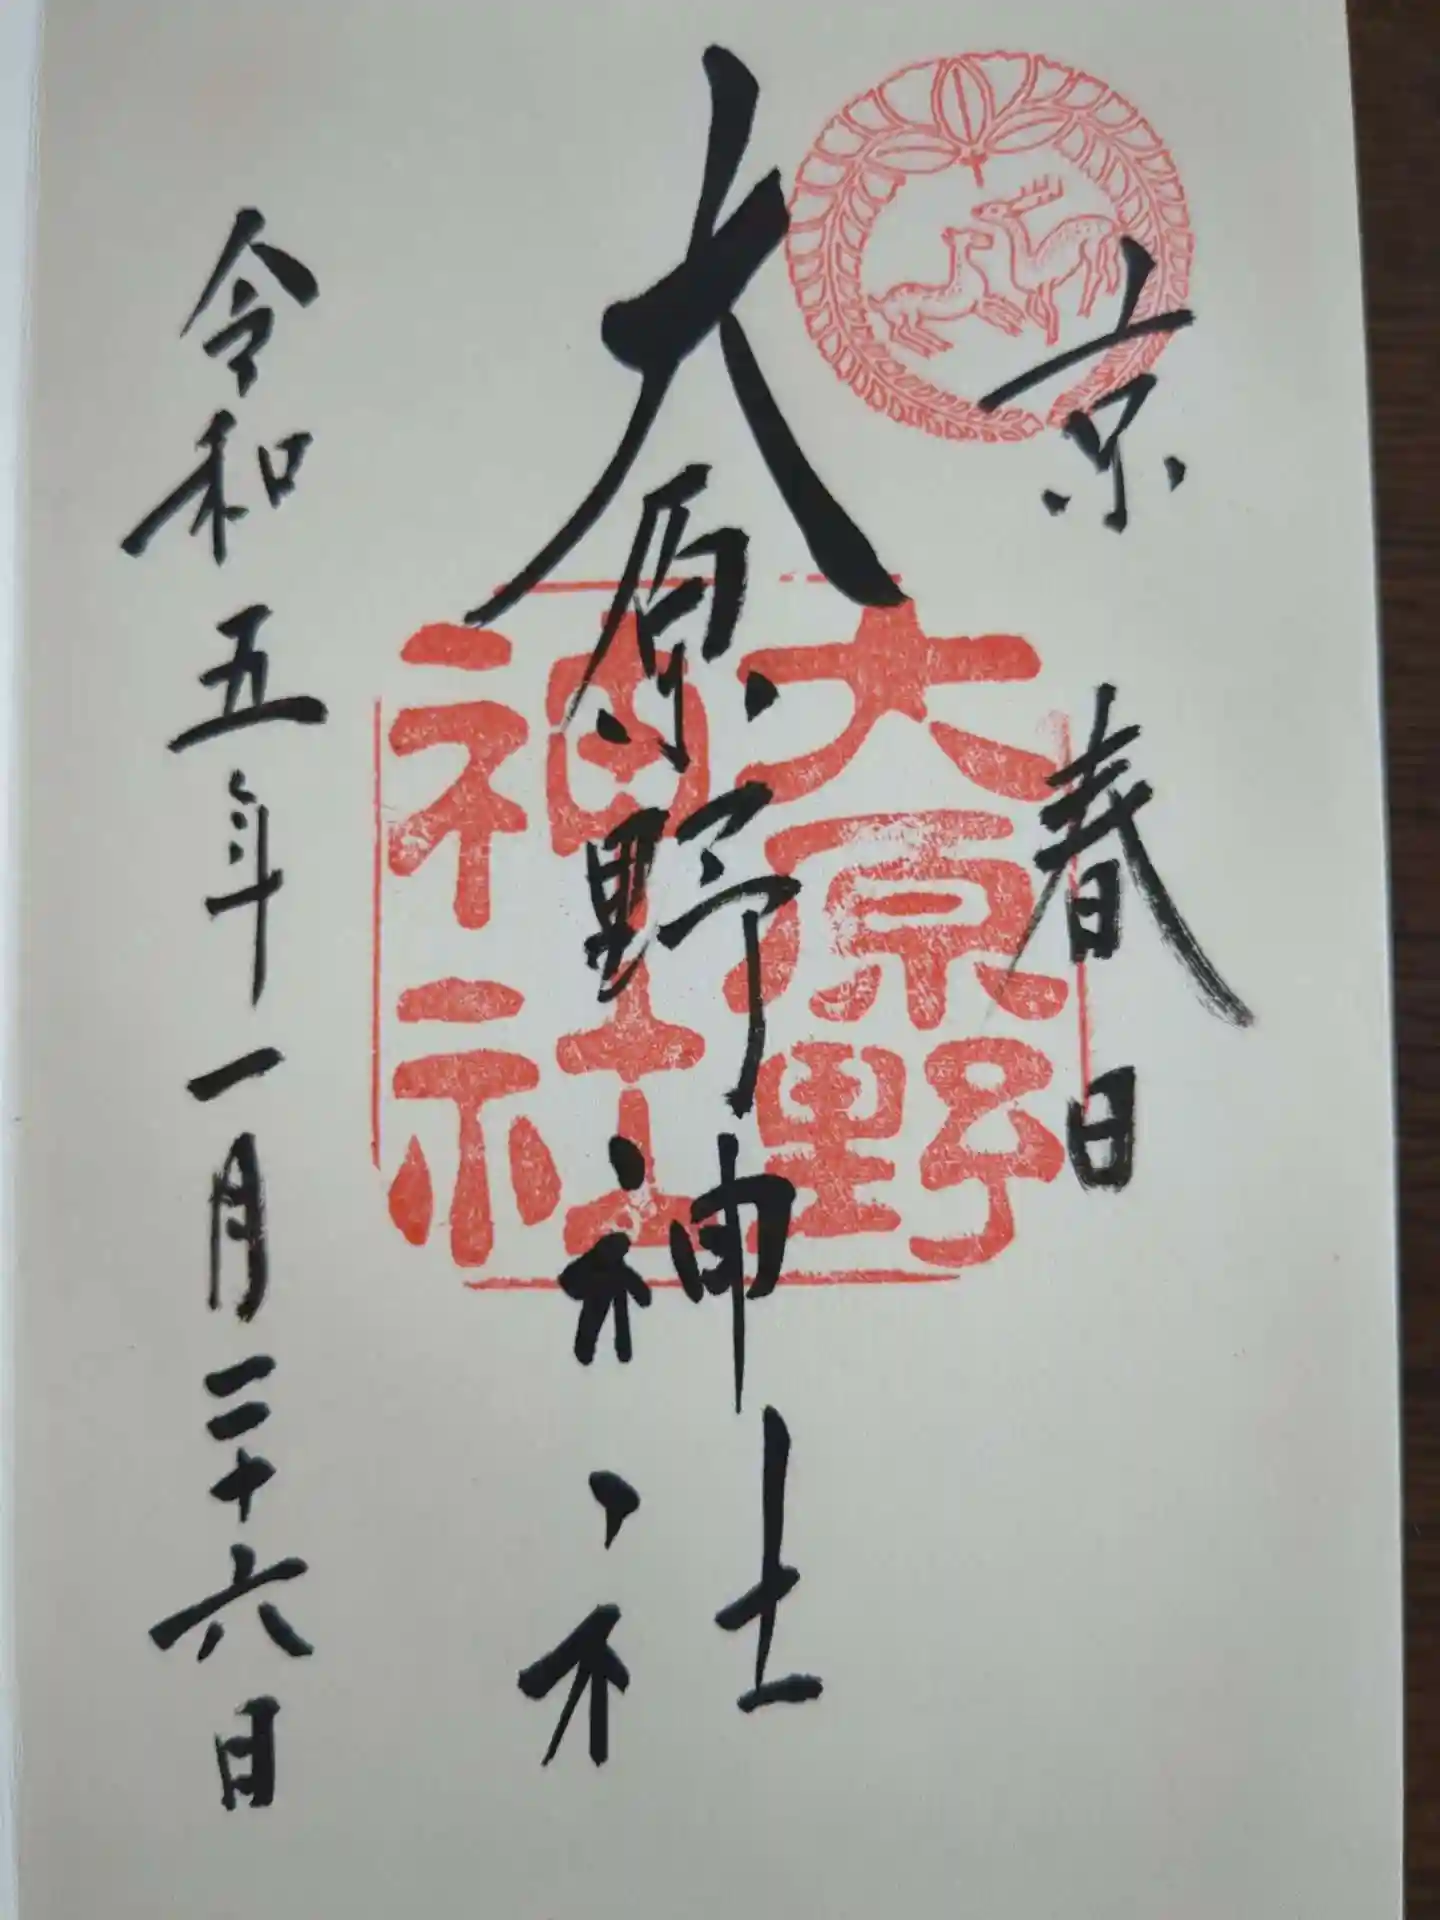 京春日
大原野神社
大原野
神社
令和五年一月二十六日